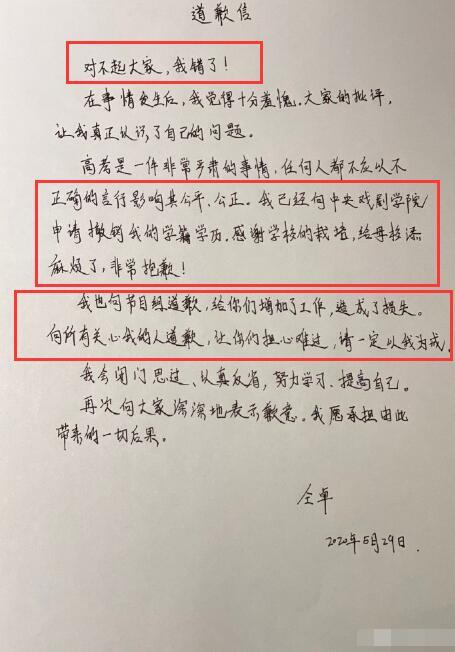 道歉信
对不起大家，我错了！
在事情发生后，我觉得十分羞愧。大家的批评，
让我真正认识了自己的问题。
高考是一件非常严肃的事情，任何人都不应以不
正确的言行影响其公平、公正。我已经向中央戏剧学院
申请撤销我的学籍学历。感谢学校的栽培，给母校添
麻烦了，非常抱歉！
我也向节目组道歉，给你们增加了工作，造成了损失。
向所有关心我的人道歉，让你们担心难过，请一定以我为戒。
我会闭门思过、认真反省，努力学习、提高自己。
再次向大家深深地表示歉意。我愿承担由此
带来的一切后果。
仝卓
2020年5月29日.